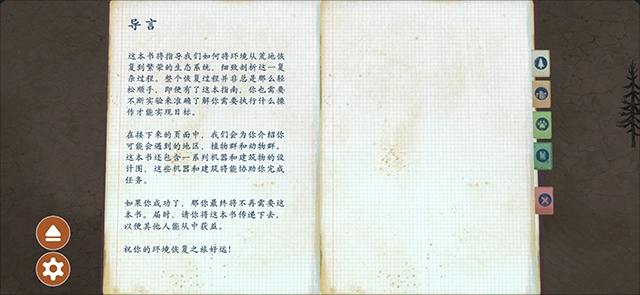 导言
这本书将指导我们如何将环境从荒地恢
复到繁荣的生态系统，细致剖析这一复
杂过程。整个恢复过程并非总是那么轻
松顺手，即便有了这本指南，你也需要
不断实验来准确了解你需要执行什么操
作才能实现目标。
在接下来的页面中，我们会为你介绍你
可能会遇到的地区，植物群和动物群。
这本书还包含一系列机器和建筑物的设
计图，这些机器和建筑将能协助你完成
任务。
如果你成功了，那你最终将不再需要这
本书。届时，请你将这本书传递下去，
以便其他人能从中获益。
祝你的环境恢复之旅好运！